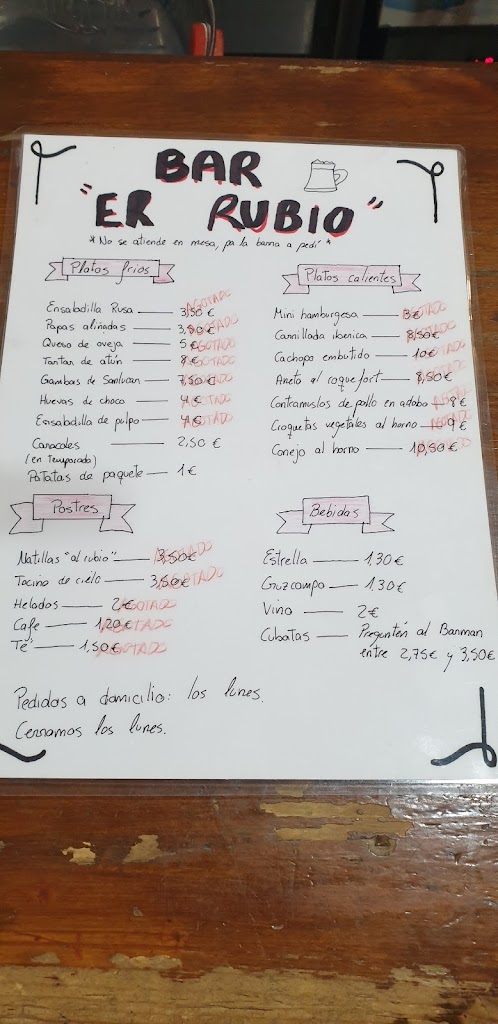 BAR
"ER RUBIO"
*No se atiende en mesa, pa la barra a pedí*
Platos fríos
Ensaladilla Rusa — 3,50€ AGOTADO
Papas aliñadas — 3,50€ AGOTADO
Queso de oveja — 5€ AGOTADO
Tartar de atún — 8€ AGOTADO
Gambas de Sanlucar — 7,50€ AGOTADO
Huevas de choco — 4€ AGOTADO
Ensaladilla de pulpo — 4€ AGOTADO
Caracoles — 2,50€
(en temporada)
Patatas de paquete — 1€
Platos calientes
Mini hamburgesa — 3€ AGOTADO
Carrillada iberica — 8,50€ AGOTADO
Cachopo embutido — 10€ AGOTADO
al roquefort — 8,50€ AGOTADO
Contramuslos de pollo en adobo — 8€
Croquetas vegetales al horno — 9€
Conejo al horno — 10,50€ AGOTADO
Postres
Natillas "al rubio" — 3,50€ AGOTADO
Tocino de cielo — 3,50€ AGOTADO
Helados — 2€ AGOTADO
Cafe — 1,20€ AGOTADO
Té — 1,50€ AGOTADO
Bebidas
Estrella — 1,30€
Cruzcampo — 1,30€
Vino — 2€
Cubatas — Pregunten al Barman
entre 2,75€ y 3,50€
Pedidos a domicilio: los lunes.
Cerramos los lunes.